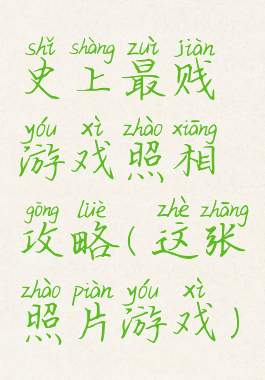 shǐ shàng zuì jiàn
史上最贱
yóu xì zhào xiāng
游戏照相
gōng lüè zhè zhāng
攻略(这张
zhào piàn yóu xì
照片游戏)